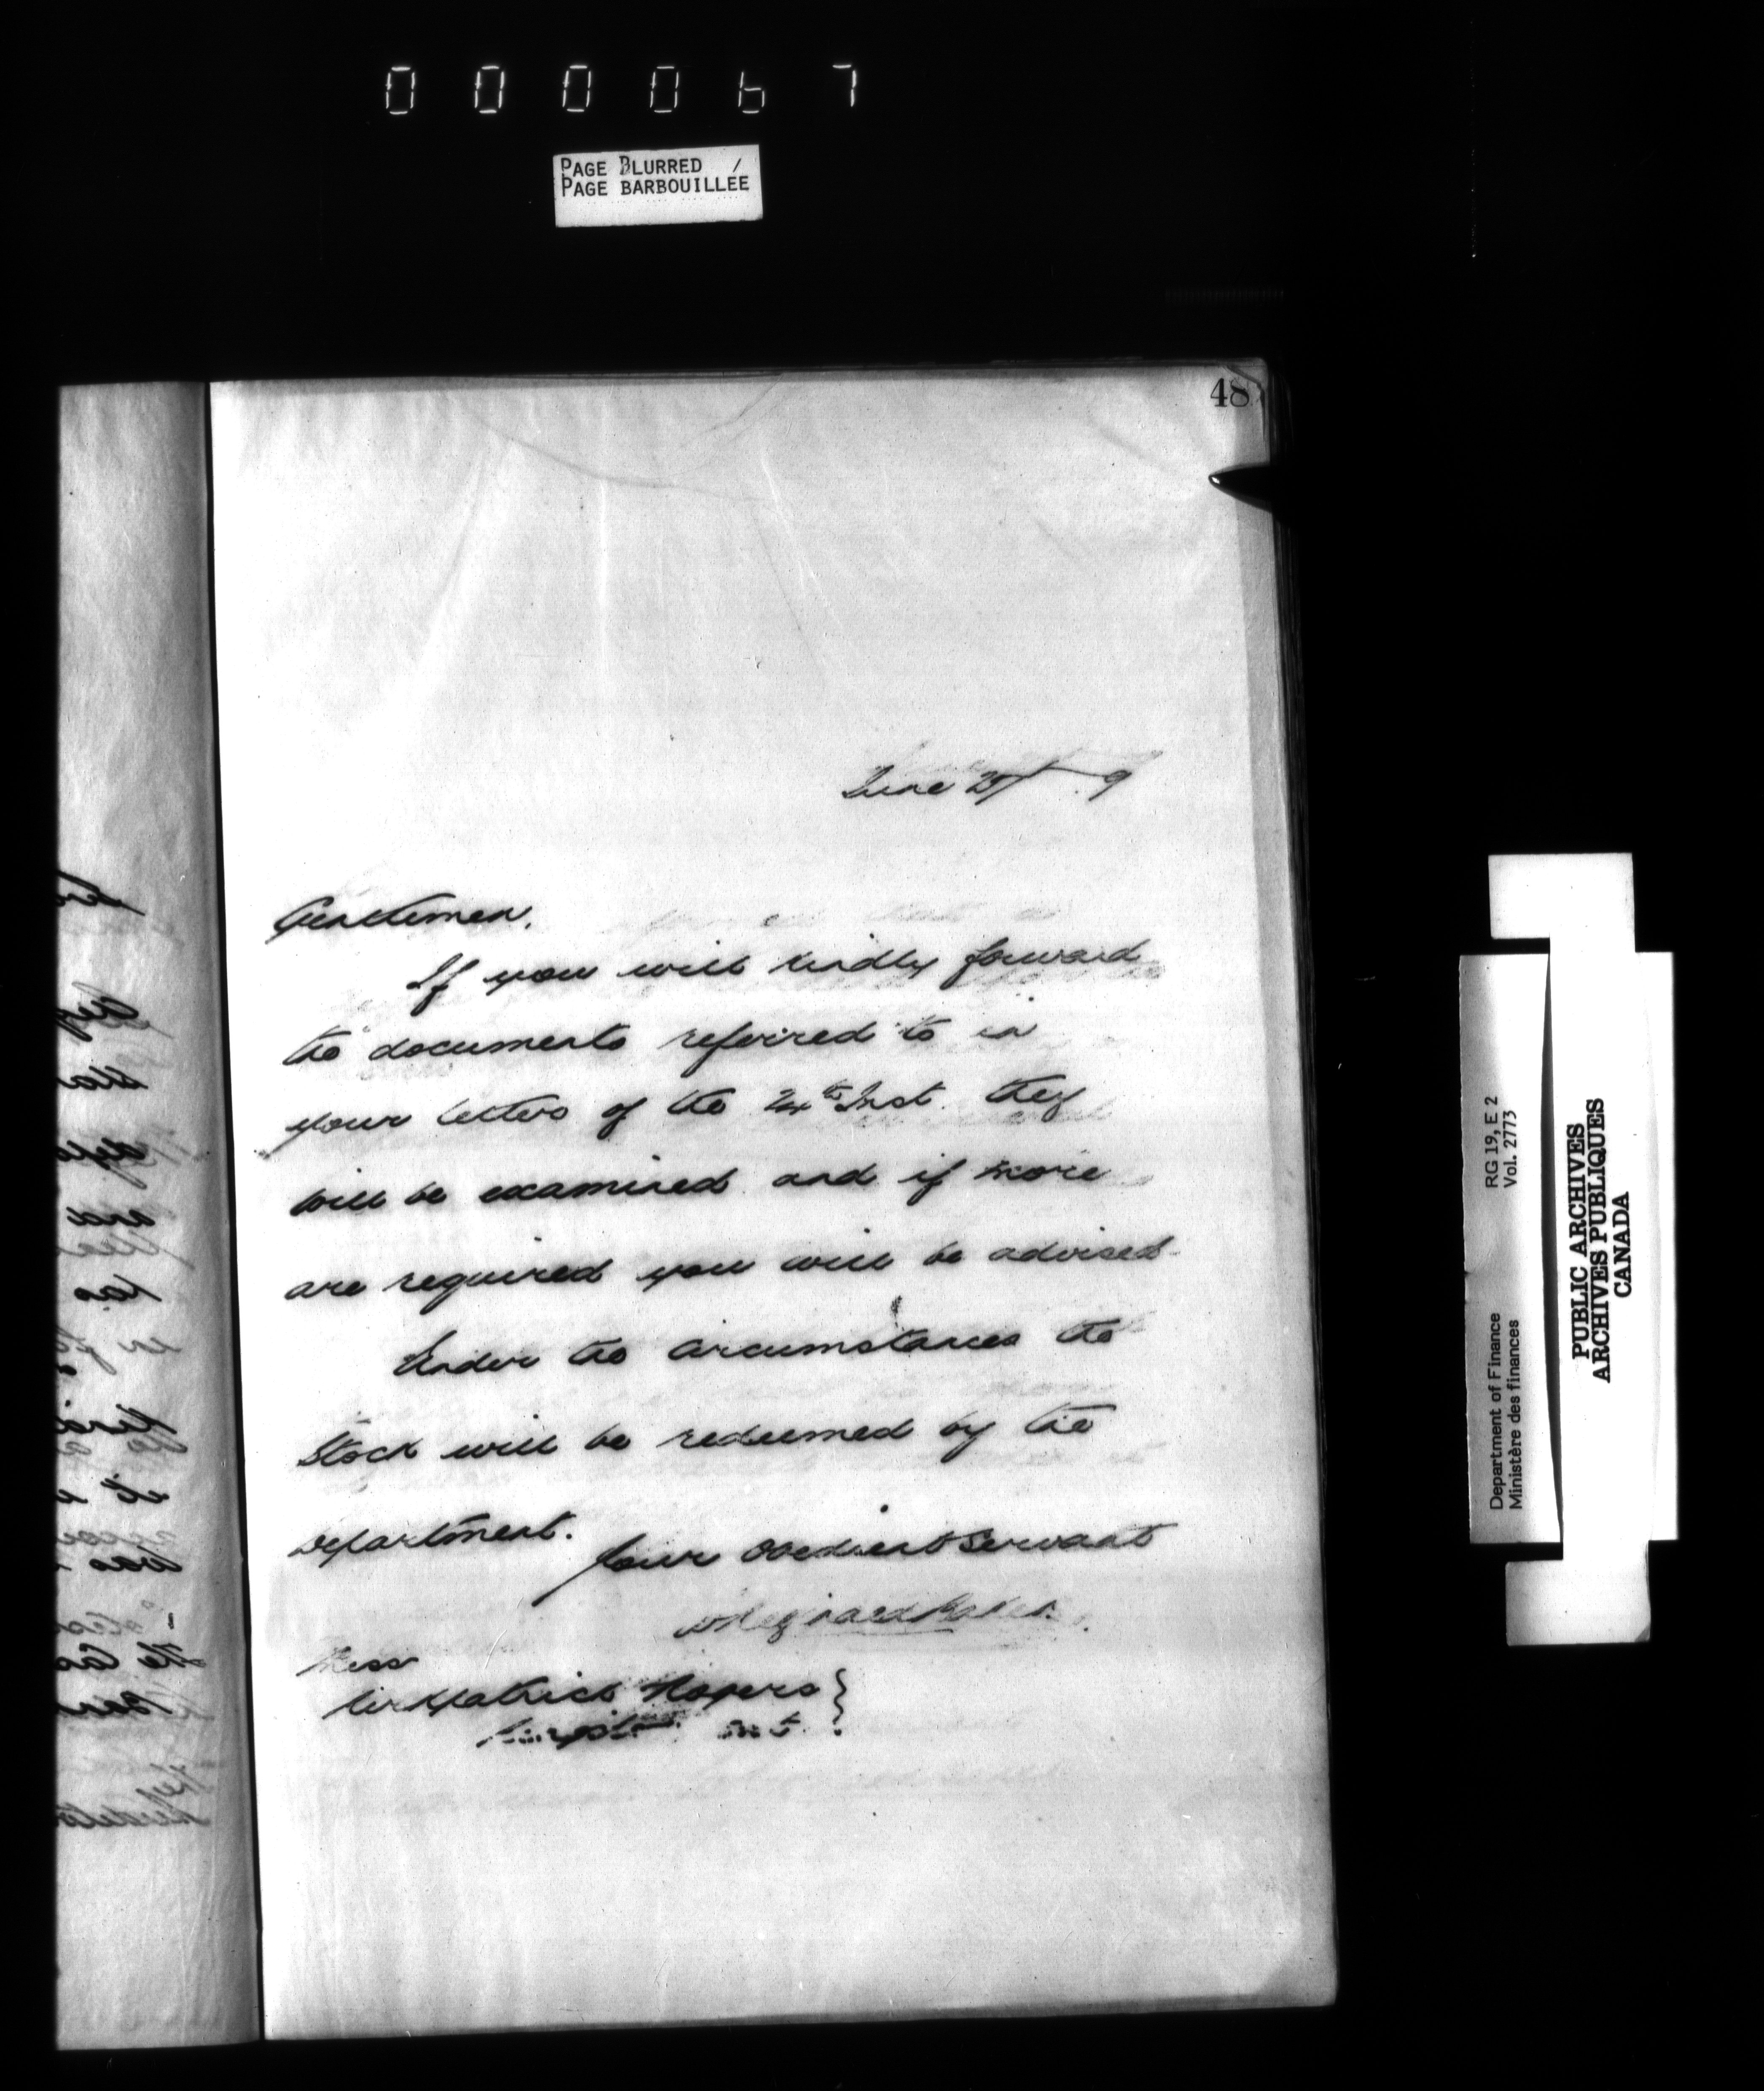 000067
PAGE BLURRED /
PAGE BARBOUILLÉE
48
June 25 9
Gentlemen,
If you will kindly forward
the documents referred to in
your letters of the 24th Inst. they
will be examined and if more
are required you will be advised
Under the circumstances the
Stock will be redeemed by the
Department.
Your Obedient Servant
Mess
Kirkpatrick Rogers
Kingston Ont.
RG 19, E 2
Vol. 2773
Department of Finance
Ministère des finances
PUBLIC ARCHIVES
ARCHIVES PUBLIQUES
CANADA